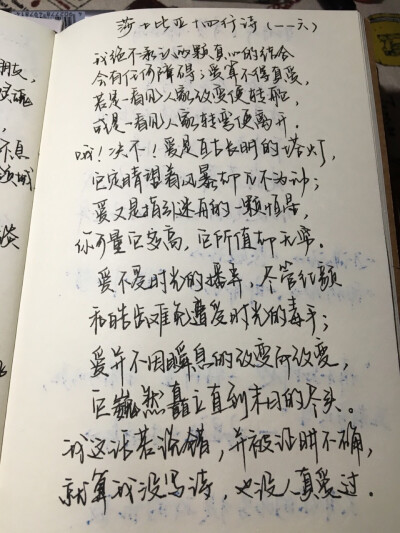 朋友,
不息
莎士比亚十四行诗(一一六)
我绝不承认两颗真心的结合
会有任何障碍;爱算不得真爱,
若是一看见人家改变便转舵,
或是一看见人家转弯便离开.
哦!决不!爱是亘古长明的塔灯,
它定睛望着风暴却兀不为动;
爱又是指引迷舟的一颗恒星,
你可量它多高,它所值却无穷.
爱不受时光的播弄,尽管红颜
和皓齿难免遭受时光的毒手;
爱并不因瞬息的改变而改变,
它巍然矗立直到末日的尽头。
我这话若说错,并被证明不确,
就算我没写诗,也没人真爱过.